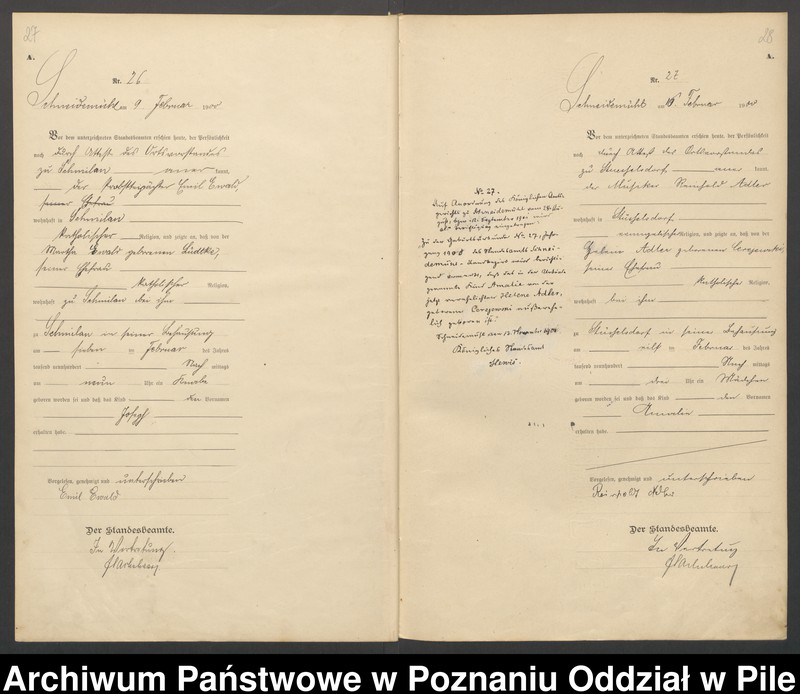 27
A.
Nr. 26
Schneidemühl am 9. Februar 1900
Vor dem unterzeichneten Standesbeamten erschien heute, der Persönlichkeit
nach durch Attest des Ortsvorstandes
zu Schmilau kannt,
der Probsteipächter Emil Ewald
seiner Ehefrau
wohnhaft in Schmilau
katholischer Religion, und zeigte an, daß von der
Martha Ewald geborenen Lüdtke,
seiner Ehefrau
katholischer Religion,
wohnhaft zu Schmilau bei ihm
zu Schmilau in seiner Behausung
am sieben ten Februar des Jahres
tausend neunhundert Nach mittags
um neun Uhr ein Knabe
geboren worden sei und daß das Kind den Vornamen
Joseph
erhalten habe.
Vorgelesen, genehmigt und unterschrieben
Emil Ewald
Der Standesbeamte.
In Vertretung
28
A.
Nr. 27
Schneidemühl am Februar 1900
Vor dem unterzeichneten Standesbeamten erschien heute, der Persönlichkeit
nach durch Attest des Ortsvorstandes
zu Stüsselsdorf kannt,
der Musiker Reinhold Adler
wohnhaft in Stüsselsdorf
evangelischer Religion, und zeigte an, daß von der
Helene Adler geborenen Cerajewski
seiner Ehefrau
katholischer Religion,
wohnhaft bei ihm
zu Stüsselsdorf in seiner Behausung
am elf ten Februar des Jahres
tausend neunhundert Nach mittags
um drei Uhr ein Mädchen
geboren worden sei und daß das Kind den Vornamen
Amalie
erhalten habe.
Vorgelesen, genehmigt und unterschrieben
Adler
Der Standesbeamte.
In Vertretung
No. 27.
Auf Anordnung des Königlichen Amts-
gerichts zu Schneidemühl vom
September
eingetragen:
Zu der Geburtsurkunde No. 27, Jahr-
gang 1900 des Standesamts Schnei-
demühl
vermerkt, daß das in der Urkunde
genannte Kind Amalie von der
jetzt verehelichten Helene Adler,
geborene Cerajewski außerehe-
lich geboren ist.
Schneidemühl am 13. November
Königliches Standesamt
Archiwum Państwowe w Poznaniu Oddział w Pile